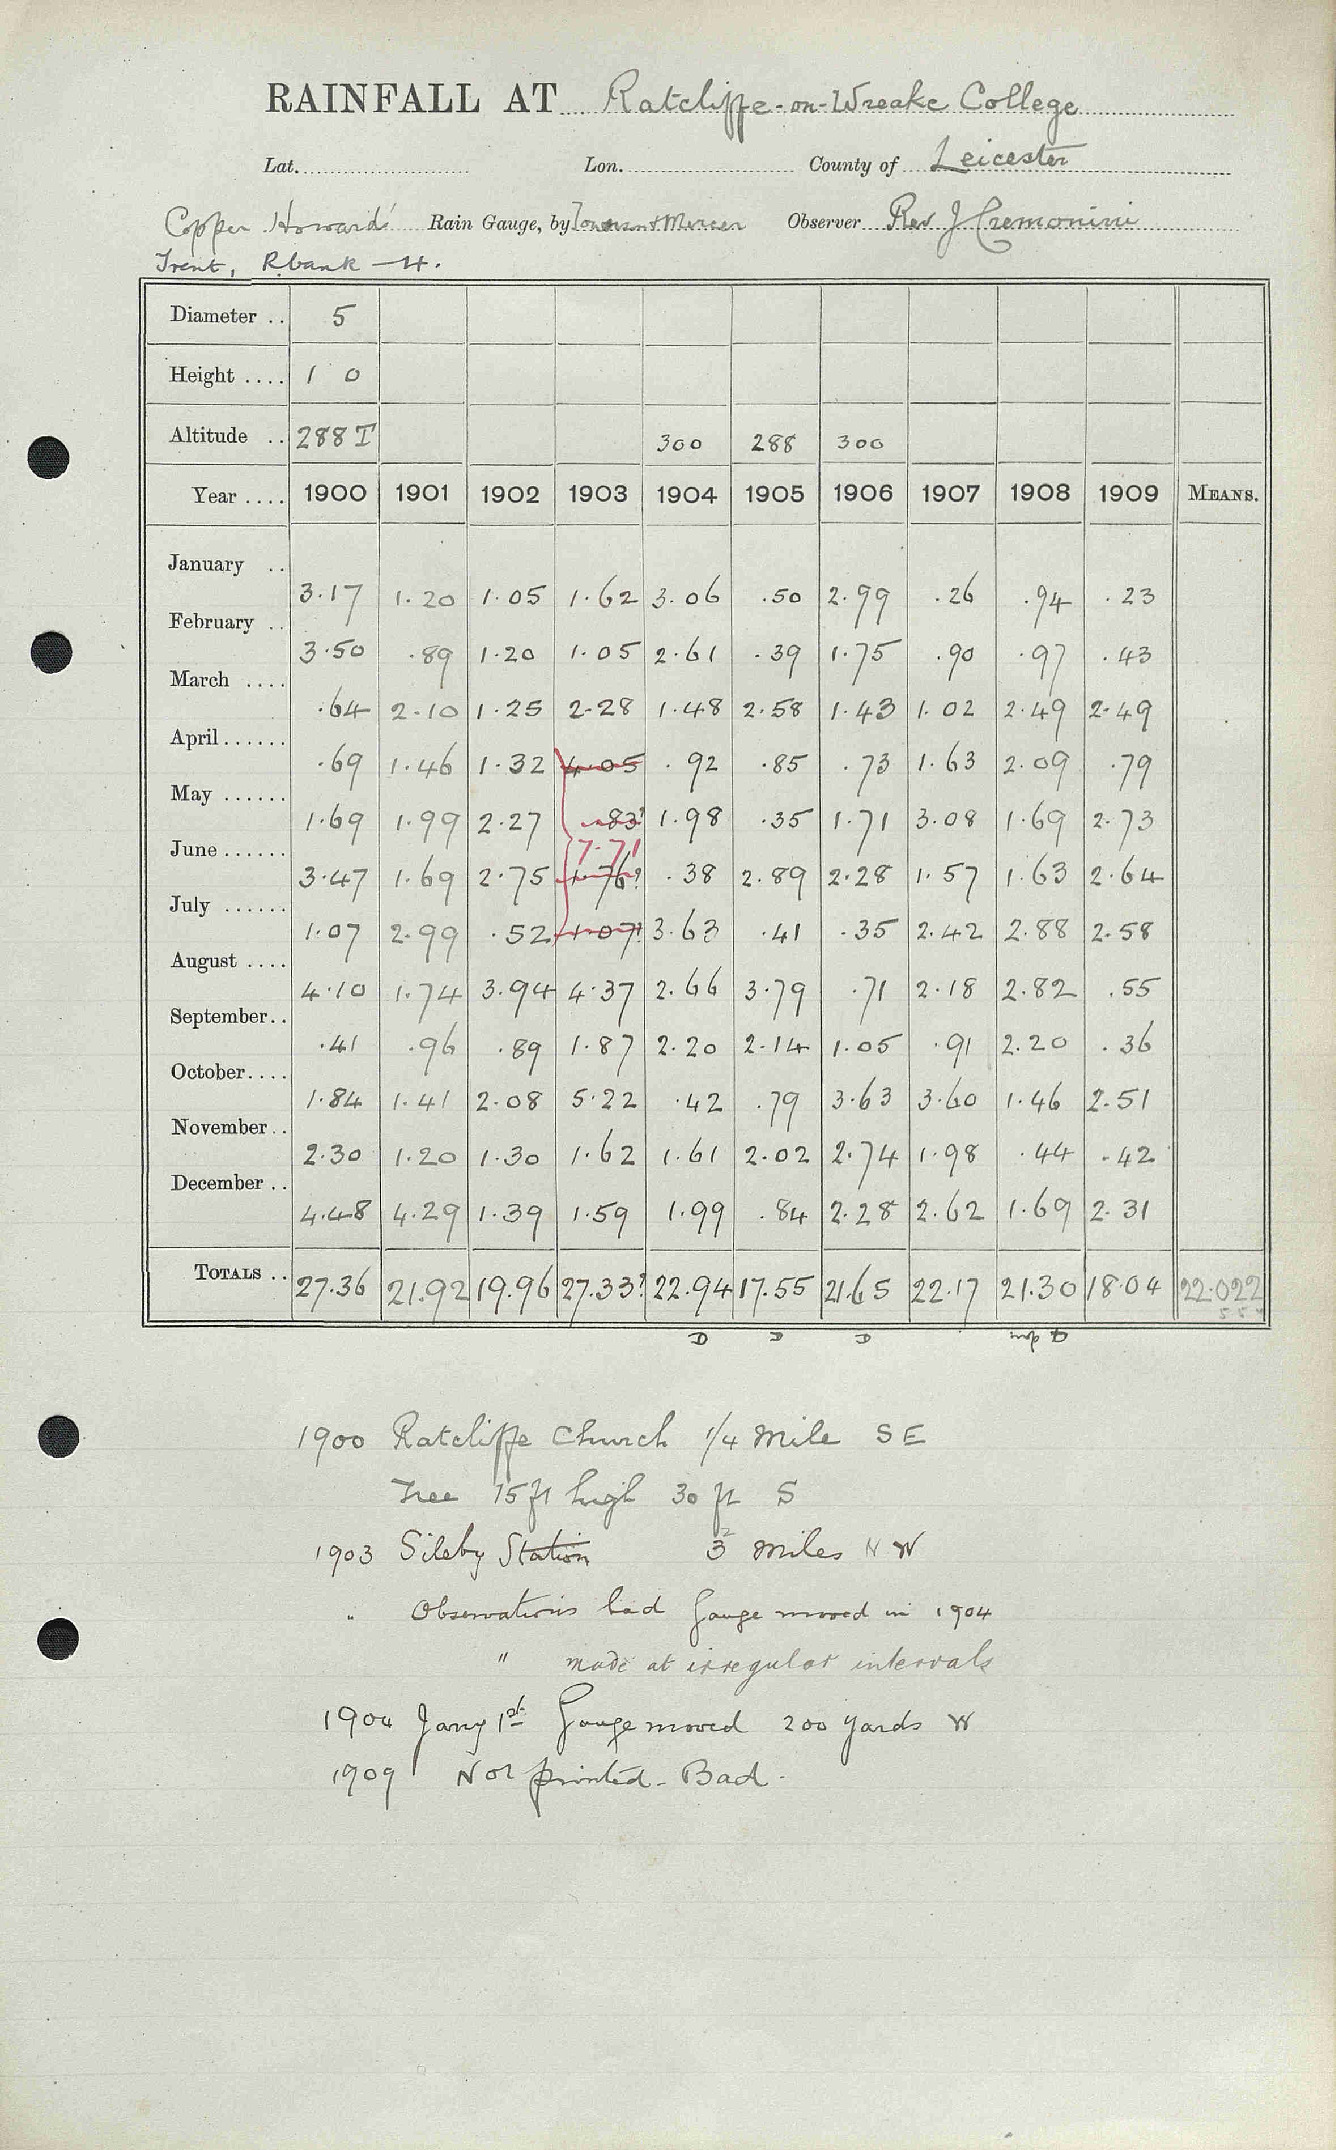 RAINFALL AT Ratcliffe-on-Wreake College
Lat. Lon. County of Leicester
Copper Howard's Rain Gauge, by Townson & Mercer Observer Rev J Cremonini
Trent, R bank — 4.
Diameter .. 5
Height .... 1 0
Altitude .. 288 T 300 288 300
Year .... 1900 1901 1902 1903 1904 1905 1906 1907 1908 1909 MEANS.
January .. 3.17 1.20 1.05 1.62 3.06 .50 2.99 .26 .94 .23
February .. 3.50 .89 1.20 1.05 2.61 .39 1.75 .90 .97 .43
March .... .64 2.10 1.25 2.28 1.48 2.58 1.43 1.02 2.49 2.49
April...... .69 1.46 1.32 4.05 .92 .85 .73 1.63 2.09 .79
May ...... 1.69 1.99 2.27 .83? 1.98 .35 1.71 3.08 1.69 2.73
7.71
June ...... 3.47 1.69 2.75 1.76? .38 2.89 2.28 1.57 1.63 2.64
July ...... 1.07 2.99 .52 1.07? 3.63 .41 .35 2.42 2.88 2.58
August .... 4.10 1.74 3.94 4.37 2.66 3.79 .71 2.18 2.82 .55
September.. .41 .96 .89 1.87 2.20 2.14 1.05 .91 2.20 .36
October.... 1.84 1.41 2.08 5.22 .42 .79 3.63 3.60 1.46 2.51
November.. 2.30 1.20 1.30 1.62 1.61 2.02 2.74 1.98 .44 .42
December .. 4.48 4.29 1.39 1.59 1.99 .84 2.28 2.62 1.69 2.31
TOTALS .. 27.36 21.92 19.96 27.33? 22.94 17.55 21.65 22.17 21.30 18.04 22.022
D D D D
1900 Ratcliffe Church 1/4 mile SE
Tree 15 ft high 30 ft S
1903 Sileby Station 3 miles N W
" Observations bad Gauge moved in 1904
" made at irregular intervals
1904 Jany 1st Gauge moved 200 yards W
1909 Not printed - Bad.